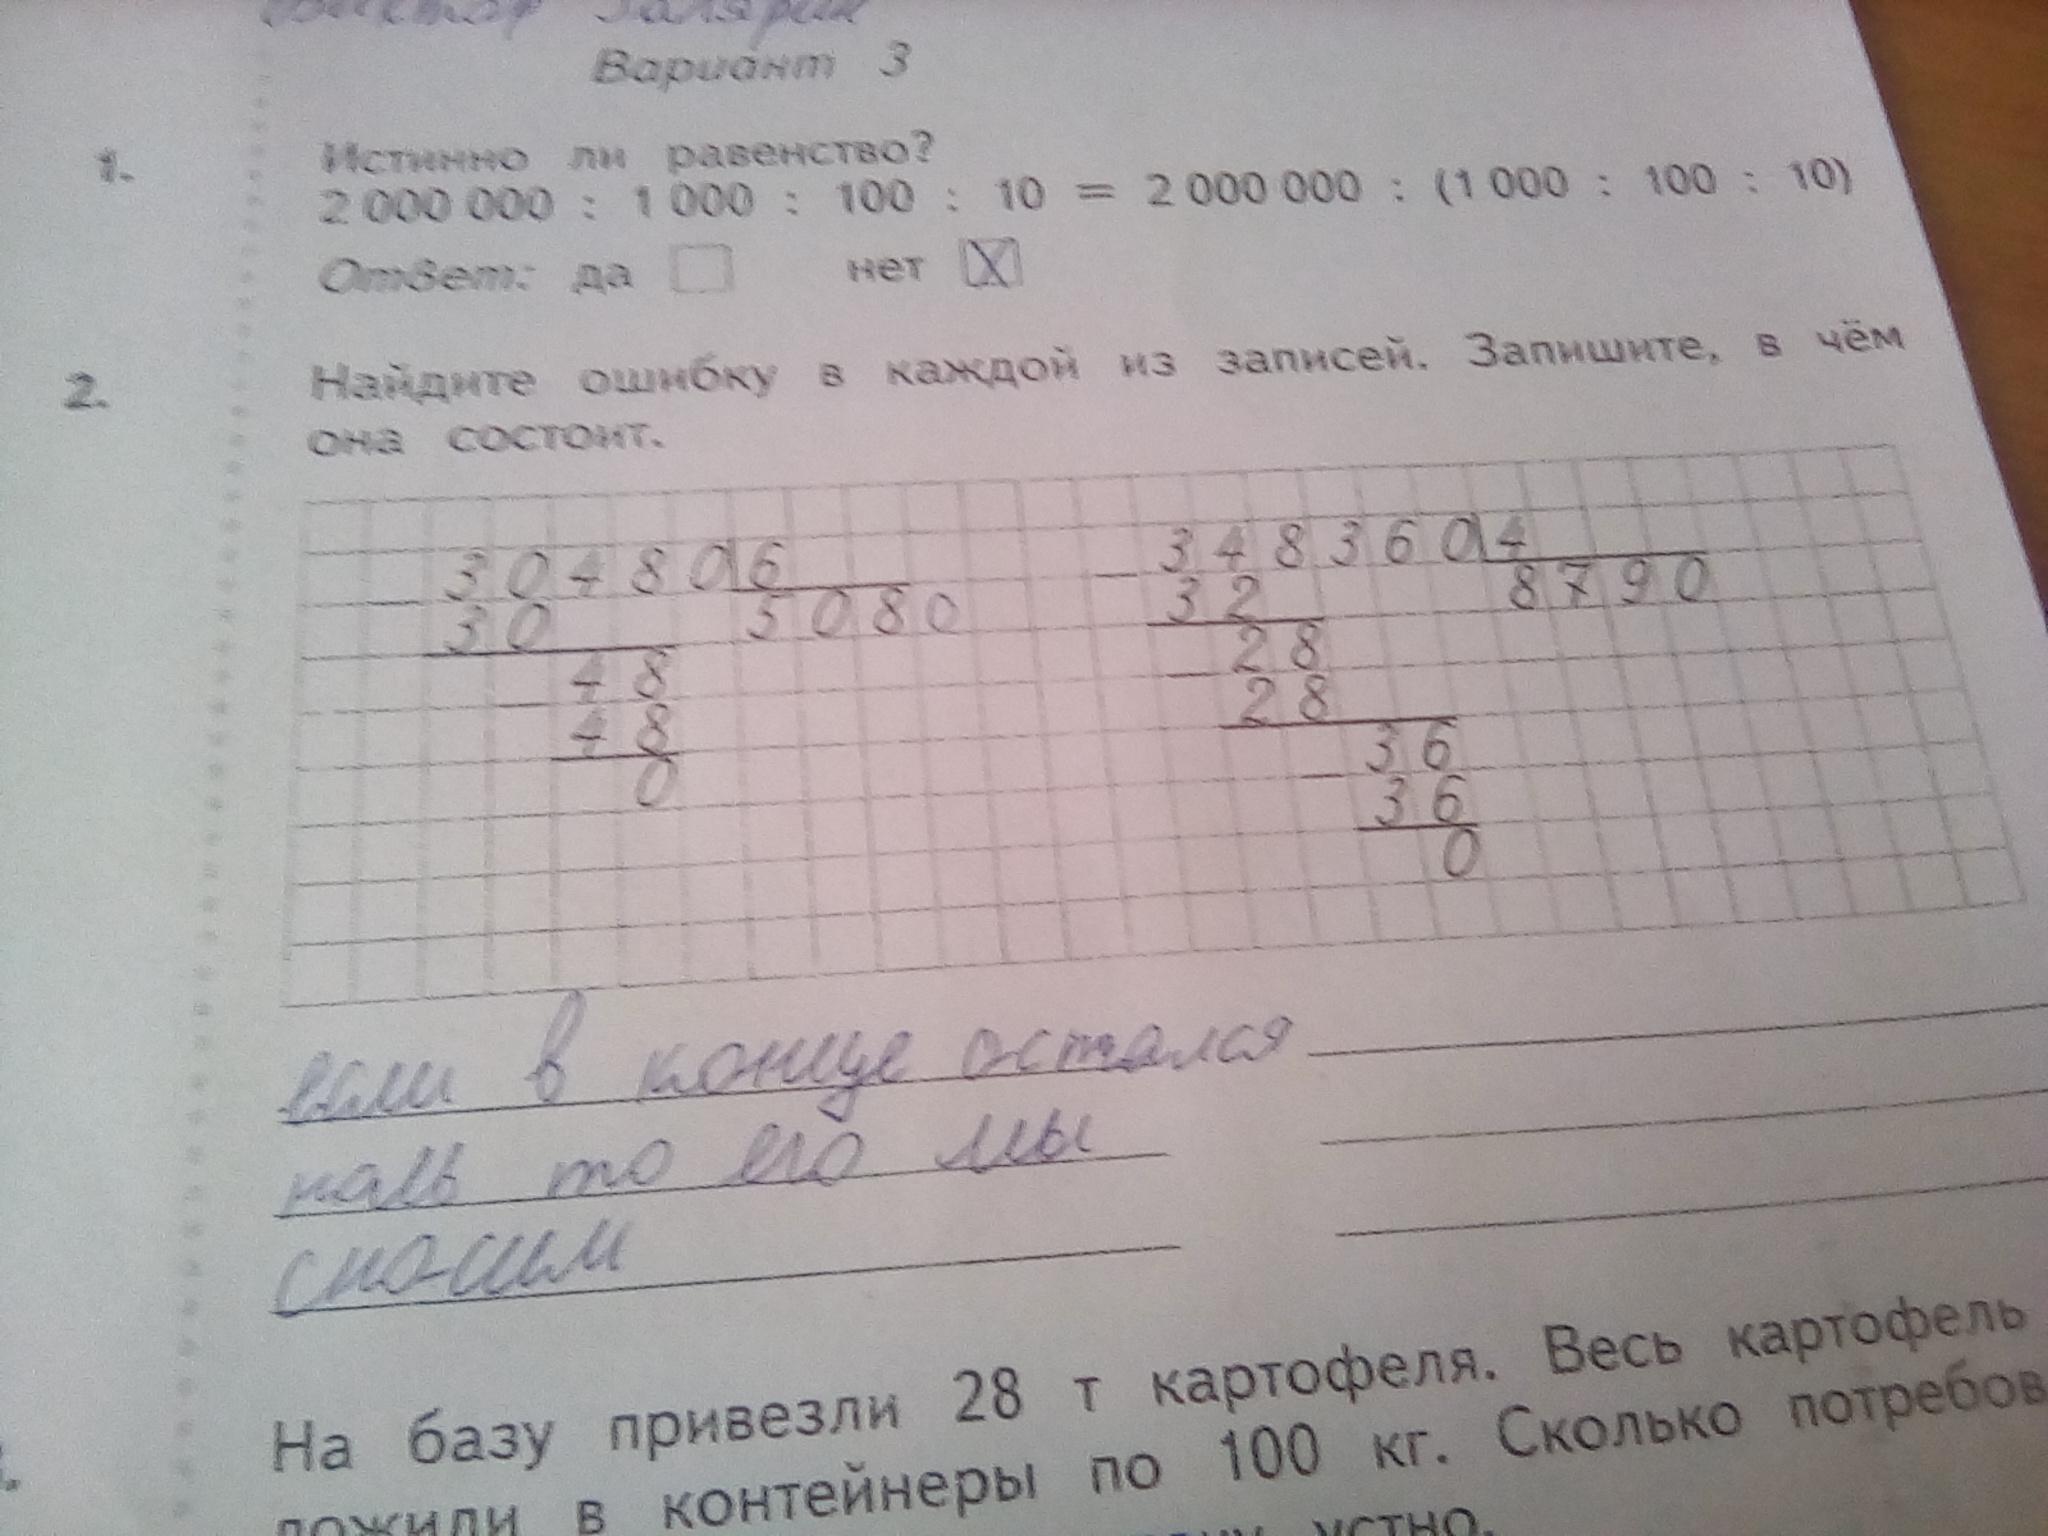 Вариант 3
1. Истинно ли равенство?
2 000 000 : 1 000 : 100 : 10 = 2 000 000 : (1 000 : 100 : 10)
Ответ: да нет X
2. Найдите ошибку в каждой из записей. Запишите, в чём
она состоит.
30480 6
30 5080
48
48
0
348360 4
32 8790
28
28
36
36
0
если в конце остался
наль то его мы
сносим
На базу привезли 28 т картофеля. Весь картофель
ложили в контейнеры по 100 кг. Сколько потребов
устно.